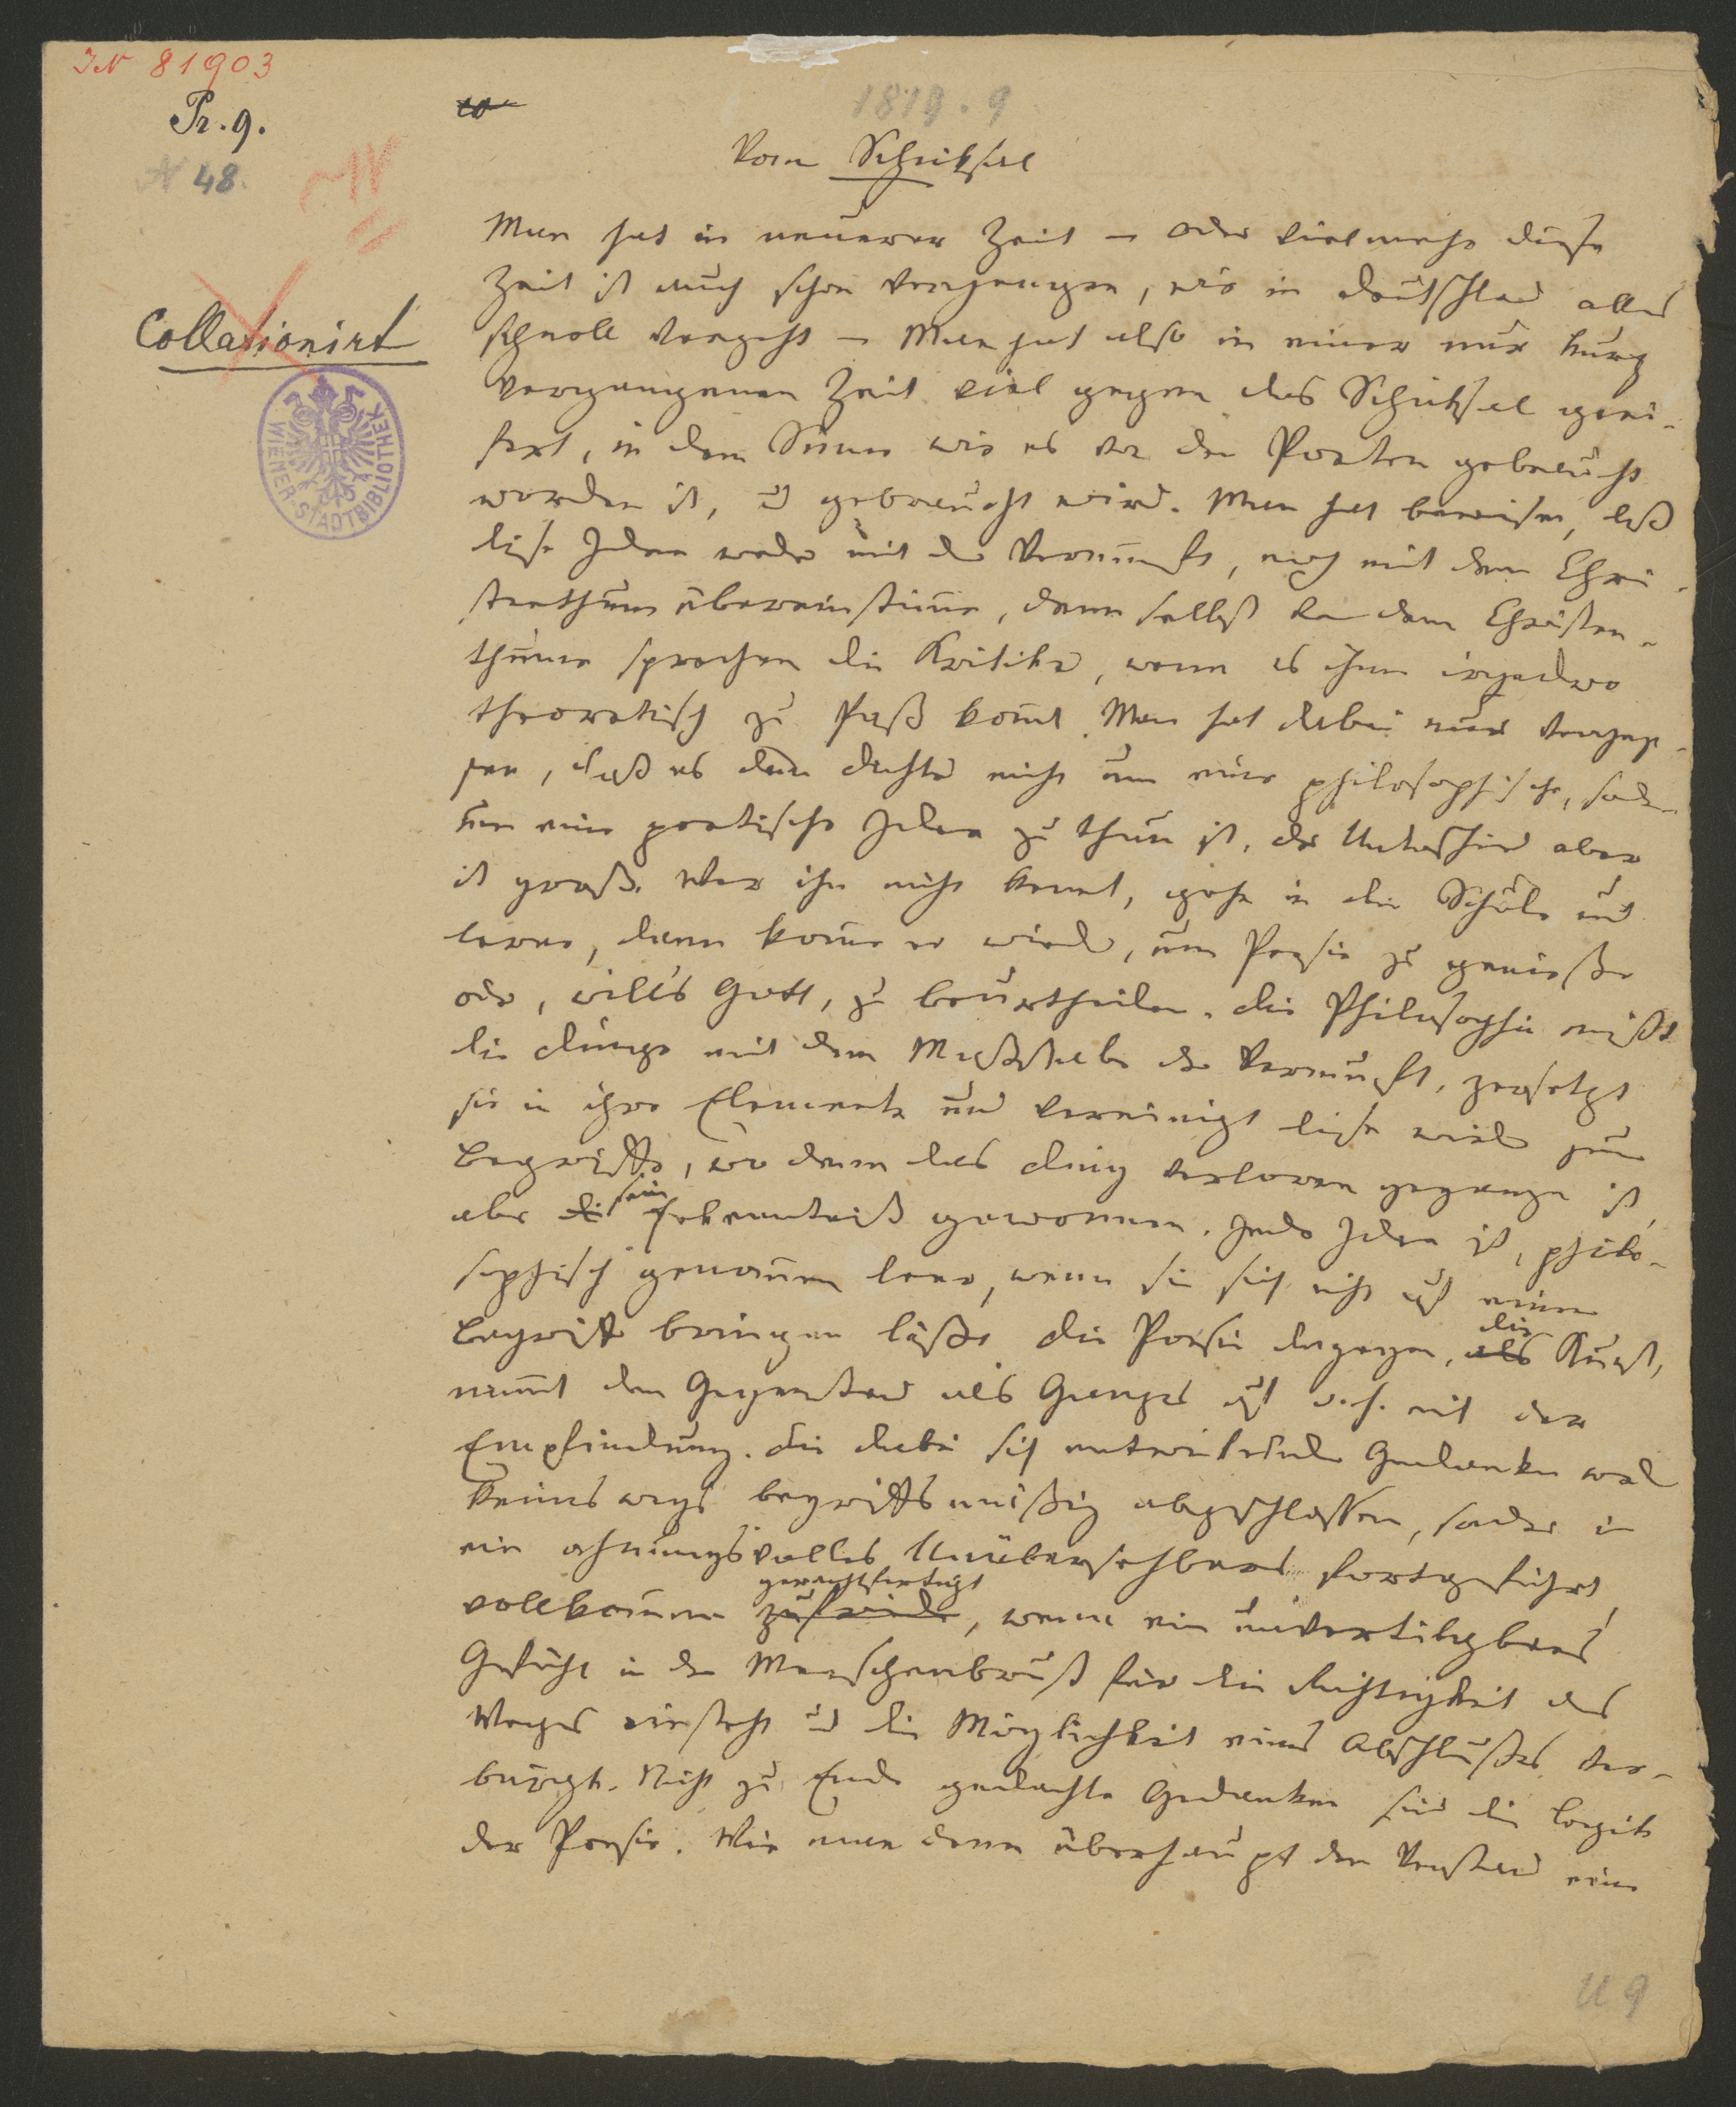 IN 81903
Pr. 9.
N 48.
1819.9
Vom Schicksal
Collationirt
WIENER-STADTBIBLIOTHEK
Man hat in neuerer Zeit – oder vielmehr diese
Zeit ist auch schon vergangen, wie in Deutschland alles
schnell vergeht – Man hat also in einer nur kurz
vergangenen Zeit viel gegen das Schicksal geei-
fert, in dem Sinne wie es von den Poeten gebraucht
worden ist, u gebraucht wird. Man hat bewiesen, daß
diese Idee weder mit der Vernunft, noch mit dem Chri-
stenthum übereinstimme, denn selbst von dem Christen-
thume sprechen die Kritiker, wenn es ihnen irgendwo
theoretisch zu Paß kommt. Man hat dabei nur verges-
sen, daß es dem Dichter nicht um eine philosophische, sondern
um eine poetische Idee zu thun ist, der Unterschied aber
ist groß. Wer ihn nicht kennt, gehe in die Schule und
lerne, dann komme er wieder, um Poesie zu genießen
oder, wills Gott, zu beurtheilen. Die Philosophie mißt
die Dinge mit dem Maßstabe der Vernunft, zersetzt
sie in ihre Elemente und vereinigt diese wieder zum
Begriffe, wo denn das Ding verloren gegangen ist,
aber die sein Erkenntniß gewonnen. Jede Idee ist, philo-
sophisch genommen leer, wenn sie sich nicht auf einen
Begriff bringen läßt. Die Poesie dagegen, als die Kunst,
nimmt den Gegenstand als Ganzes auf d.h. mit der
Empfindung. Die dabei sich entwickelnden Gedanken werden
keineswegs begriffsmäßig abgeschlossen, sondern in
ein ahnungsvolles Unübersehbares fortgeführt,
vollkommen zufrieden gerechtfertigt, wenn ein unvertilgbares
Gefühl in der Menschenbrust für die Richtigkeit des
Weges einsteht u die Möglichkeit eines Abschlußes ver-
bürgt. Nicht zu Ende gedachte Gedanken sind die Logik
der Poesie. Wie man denn überhaupt den Verstand eine
U 9